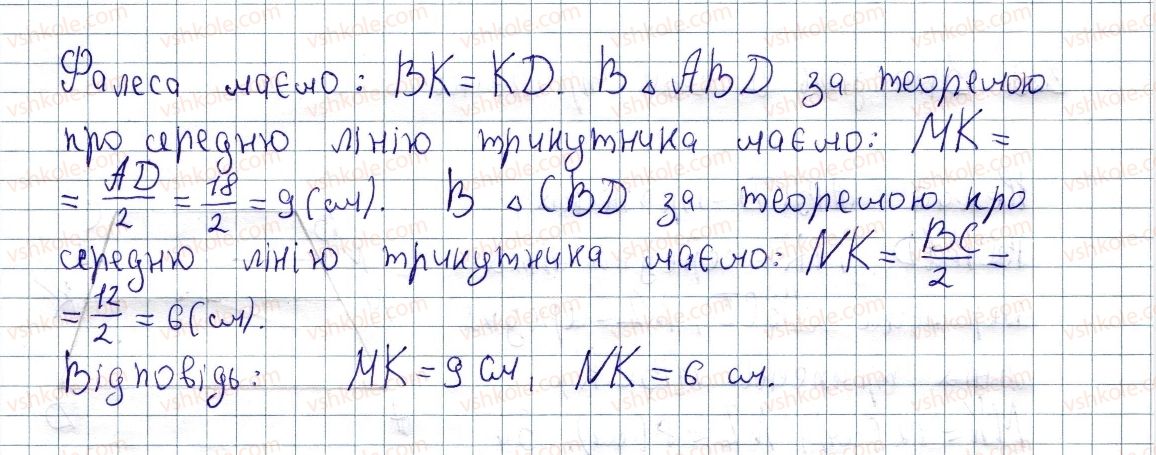 Фалеса маємо: BK = KD. В △ ABD за теоремою
про середню лінію трикутника маємо: MK =
= AD/2 = 18/2 = 9 (см). В △ CBD за теоремою про
середню лінію трикутника маємо: NK = BC/2 =
= 12/2 = 6 (см).
Відповідь: MK = 9 см, NK = 6 см.